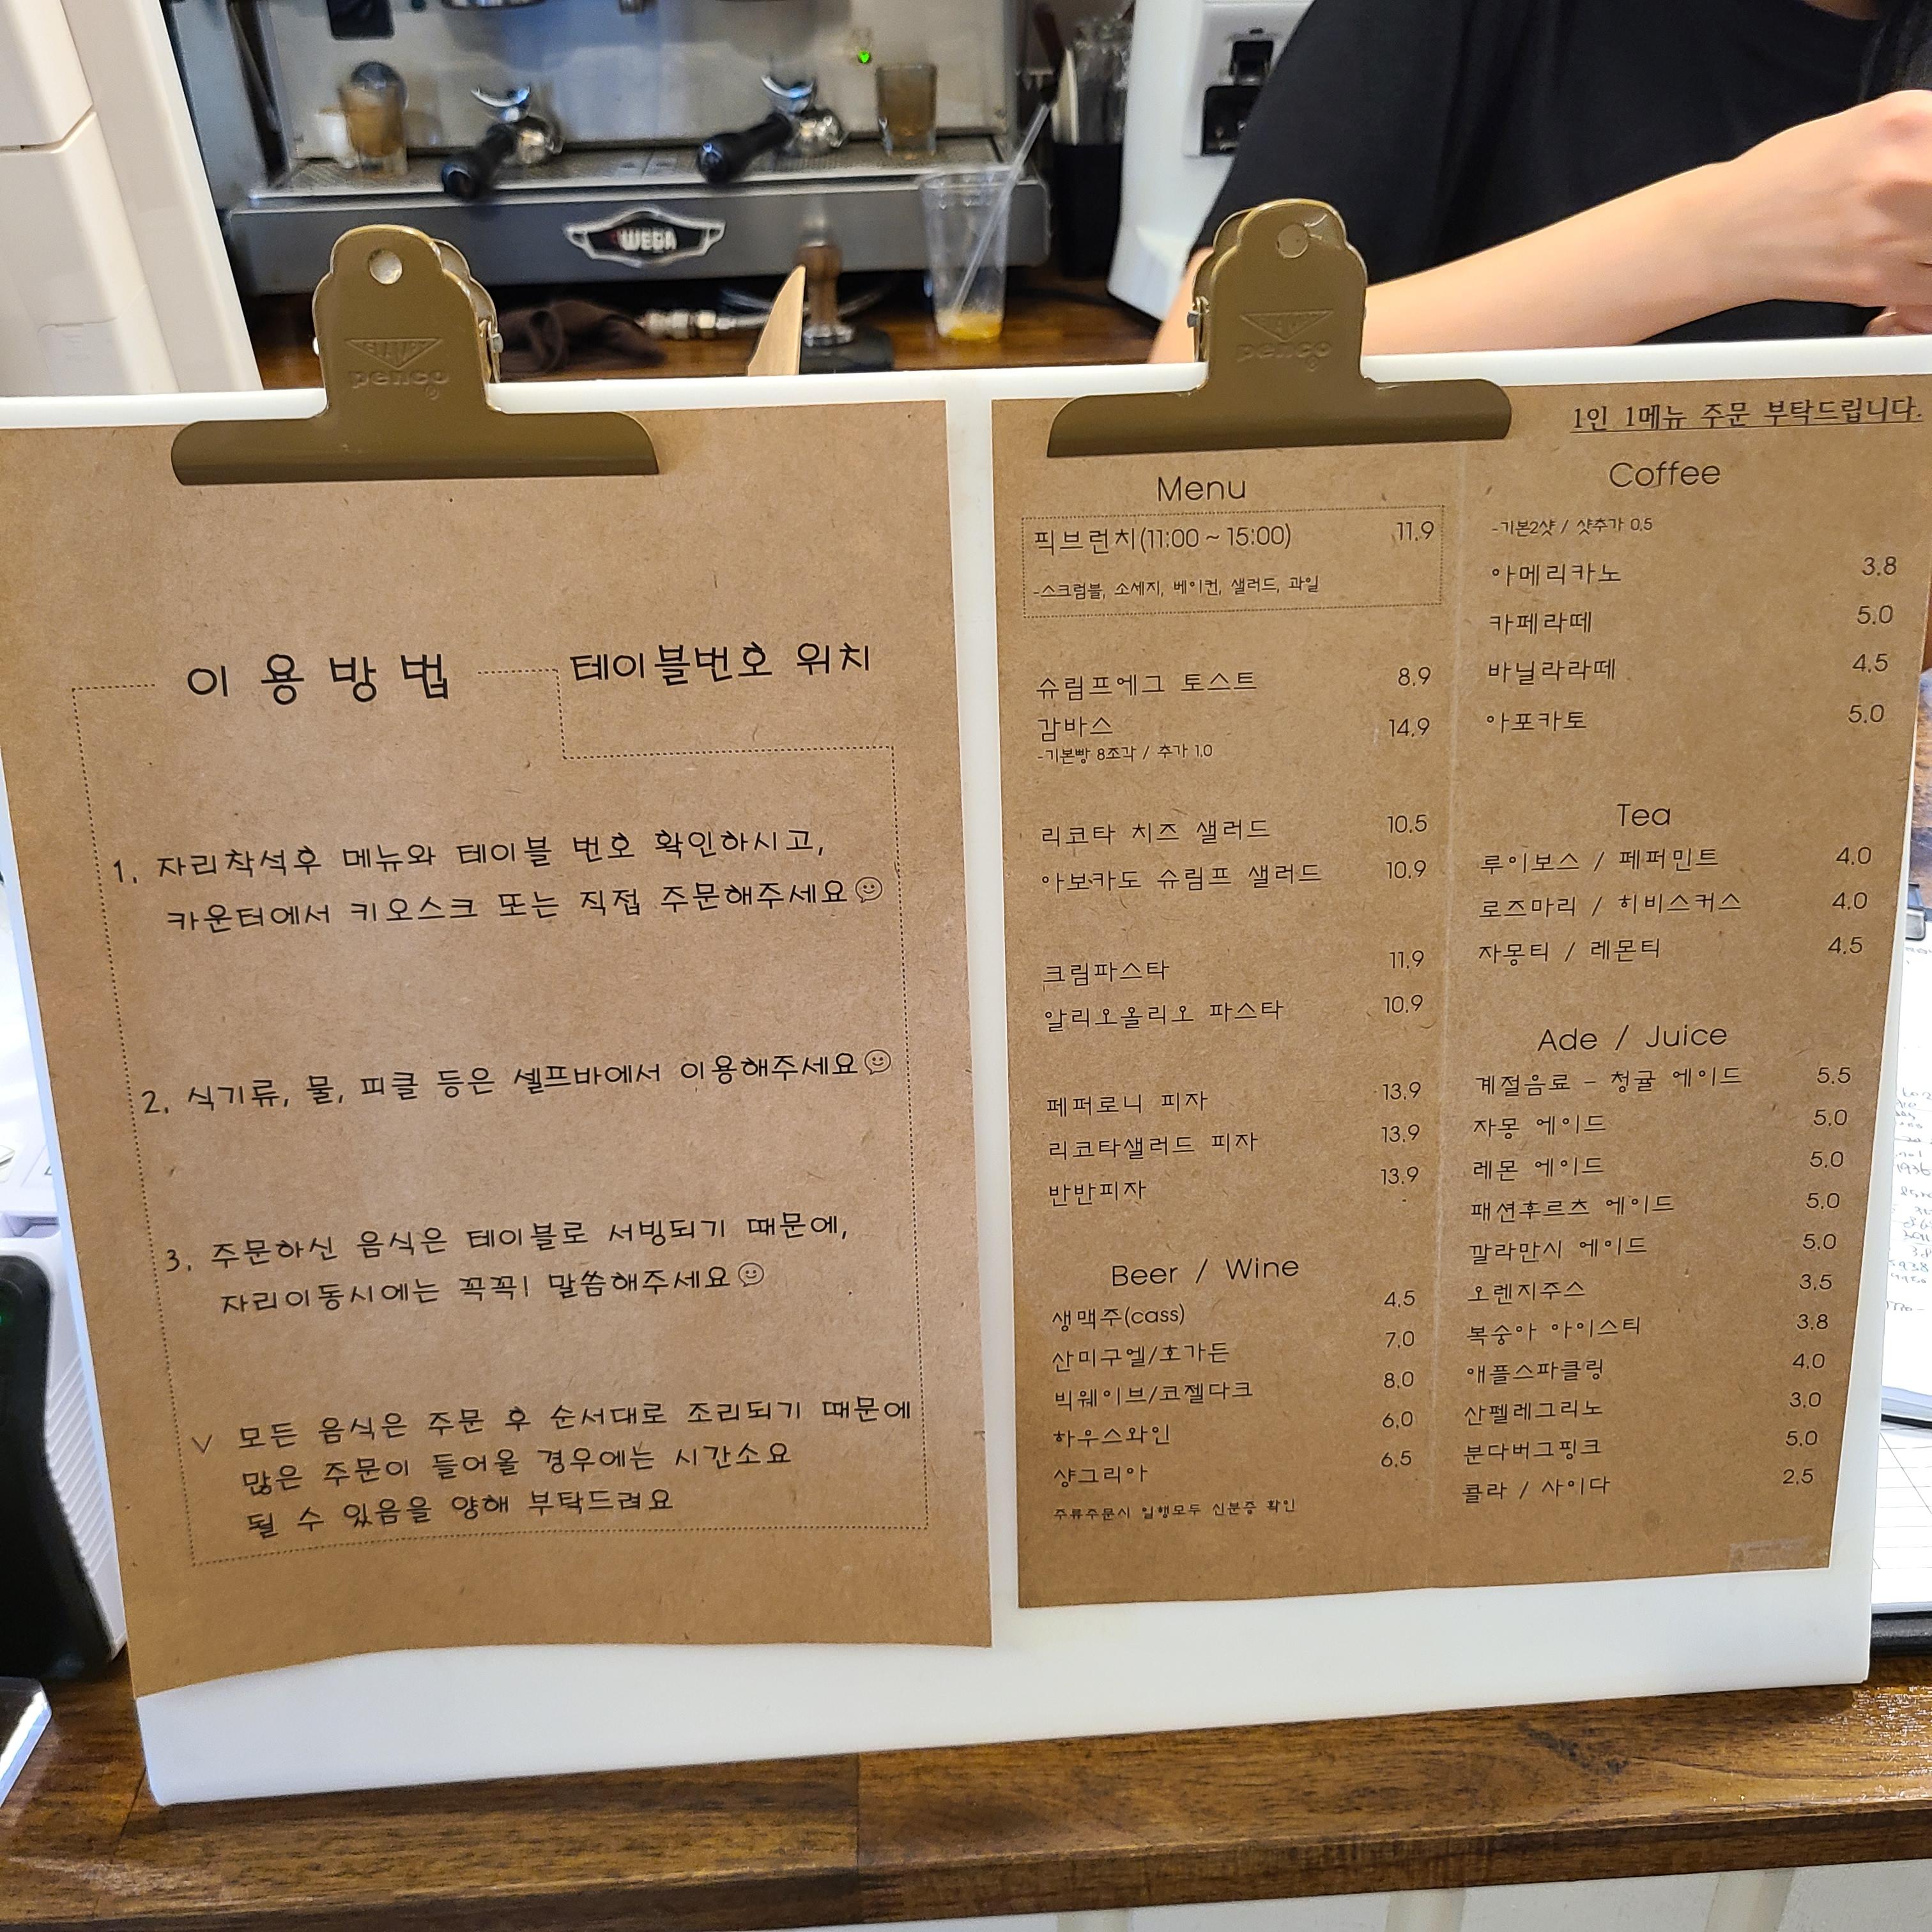 WEGA
penco
이용방법
테이블번호 위치
1. 자리착석후 메뉴와 테이블 번호 확인하시고,
카운터에서 키오스크 또는 직접 주문해주세요
2. 식기류, 물, 피클 등은 셀프바에서 이용해주세요
3. 주문하신 음식은 테이블로 서빙되기 때문에,
자리이동시에는 꼭꼭! 말씀해주세요
V 모든 음식은 주문 후 순서대로 조리되기 때문에
많은 주문이 들어올 경우에는 시간소요
될 수 있음을 양해 부탁드려요
penco
1인 1메뉴 주문 부탁드립니다.
Menu
픽브런치(11:00 ~ 15:00) 11.9
-스크럼블, 소세지, 베이컨, 샐러드, 과일
슈림프에그 토스트 8.9
감바스 14.9
-기본빵 8조각 / 추가 1.0
리코타 치즈 샐러드 10.5
아보카도 슈림프 샐러드 10.9
크림파스타 11.9
알리오올리오 파스타 10.9
페퍼로니 피자 13.9
리코타샐러드 피자 13.9
반반피자 13.9
Beer / Wine
생맥주(cass) 4.5
산미구엘/호가든 7.0
빅웨이브/코젤다크 8.0
하우스와인 6.0
샹그리아 6.5
주류주문시 일행모두 신분증 확인
Coffee
-기본2샷 / 샷추가 0.5
아메리카노 3.8
카페라떼 5.0
바닐라라떼 4.5
아포카토 5.0
Tea
루이보스 / 페퍼민트 4.0
로즈마리 / 히비스커스 4.0
자몽티 / 레몬티 4.5
Ade / Juice
계절음료 - 청귤 에이드 5.5
자몽 에이드 5.0
레몬 에이드 5.0
패션후르츠 에이드 5.0
깔라만시 에이드 5.0
오렌지주스 3.5
복숭아 아이스티 3.8
애플스파클링 4.0
산펠레그리노 3.0
분다버그핑크 5.0
콜라 / 사이다 2.5